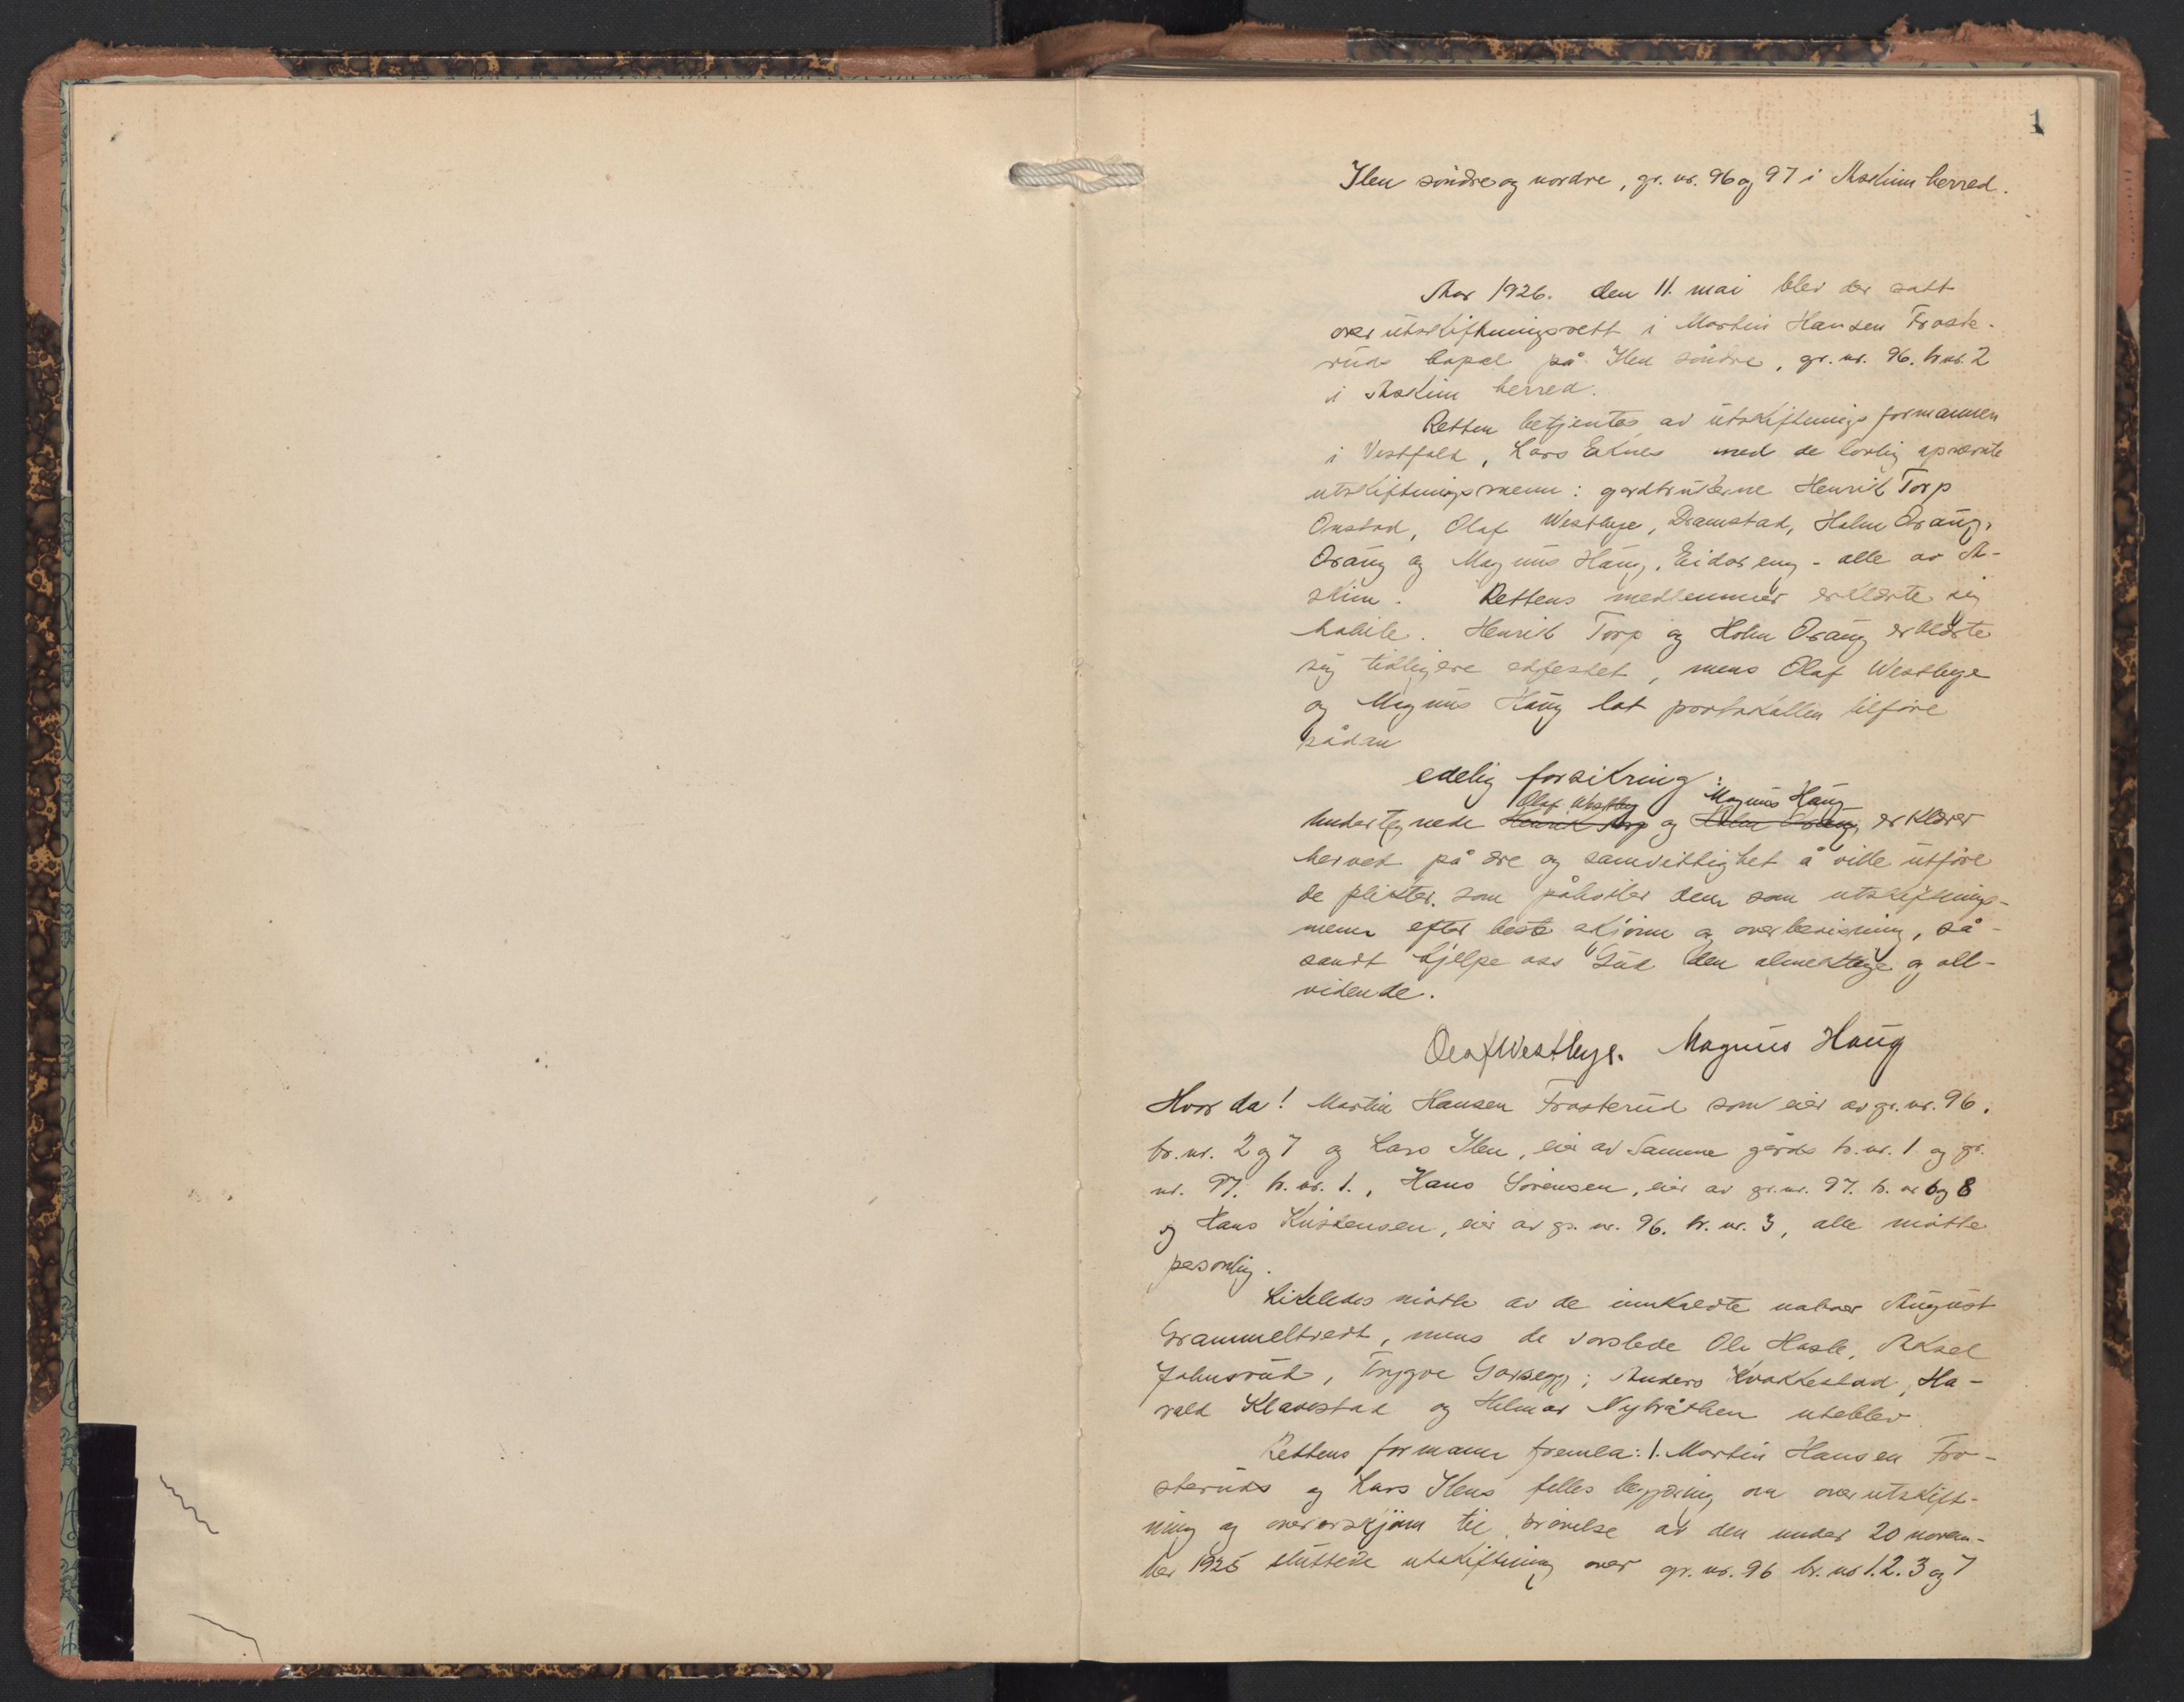 1
Ilen søndre og nordre, gr. nr. 96 og 97 i Askim herred.
Aar 1926. den 11. mai blev der satt
overutskiftningsrett i Martin Hansen Froste-
ruds bopel på Ilen søndre, gr. nr. 96. br.nr. 2
i Askim herred.
Retten betjentes av utskiftningsformannen
i Vestfold, Lars Eknes med de lovlig opnevnte
utskiftningsmenn: gardbrukerne Henrik Torp
Onstad, Olaf Westbye, Dramstad, Holm Oraug,
Oraug og Magnus Haug, Eidareng - alle av A-
skim. Rettens medlemmer erklærte sig
habile. Henrik Torp og Holm Oraug erklærte
sig tidligere edfestet, mens Olaf Westbye
og Magnus Haug lot protokollen tilføre
sådan
edelig forsikring:
Olaf Westby Magnus Haug
Undertegnede Henrik Torp og Holm Oraug erklærer
herved på ære og samvittighet å ville utføre
de plikter som påhviler dem som utskiftnings-
menn efter beste skjønn og overbevisning, så
sandt hjelpe oss Gud den almektige og all-
vidende.
Olaf Westbye. Magnus Haug
Hvorda! Martin Hansen Frosterud som eier av gr. nr. 96.
br. nr. 2 og 7 og Lars Ilen, eier av samme gårds br. nr. 1 og gr.
nr. 97. br. nr. 1., Hans Sørensen, eier av gr. nr. 97. br. nr 6 og 8
og Hans Kristensen, eier av gr. nr. 96. br. nr. 3, alle møtte
personlig.
Likeledes møtte av de innkaldte naboer August
Grammeltvedt, mens de varslede Ole Hasle, Aksel
Johnsrud, Trygve Garsegg; Anders Kvakkestad, Ha-
rald Klavestad og Helmar Nybråthen uteblev
Rettens formann fremla: 1. Martin Hansen Fro-
steruds og Lars Ilens felles begjæring om overutskift-
ning og overskjønn til prøvelse av den under 20 novem-
ber 1925 sluttede utskiftning over gr. nr. 96 br. nr 1. 2. 3 og 7